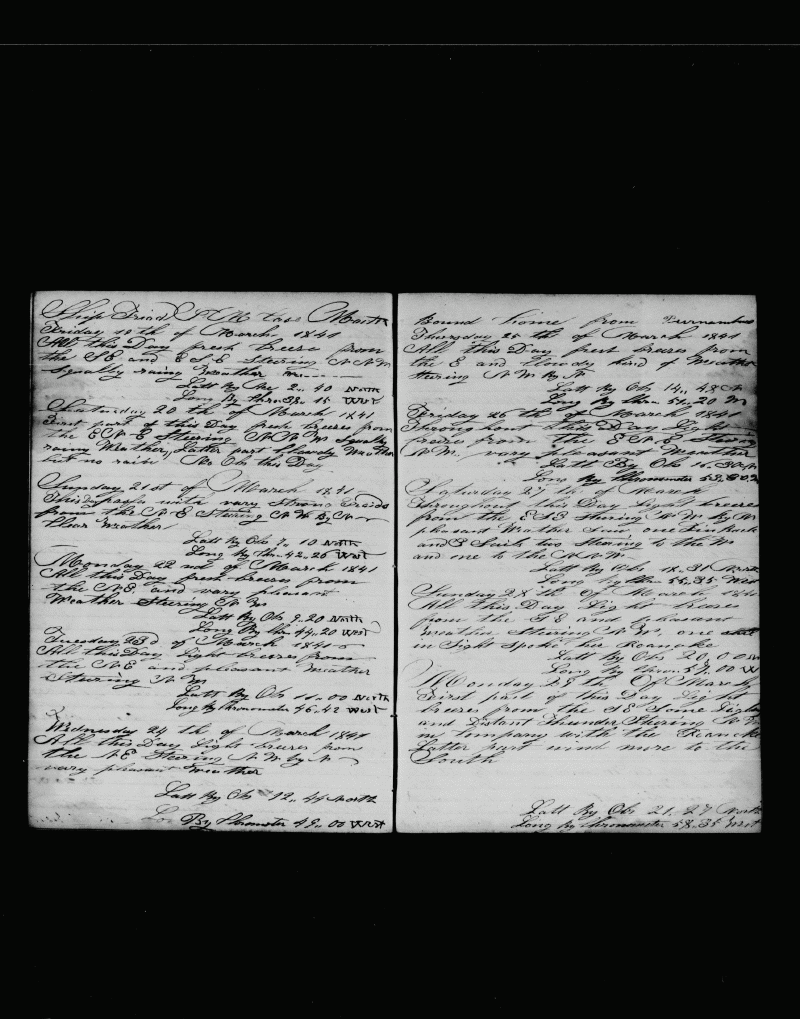 Ship Triad Case Master
Friday 19 th of March 1841
All this Day fresh breeze from
the SE and ESE Steering N N W
Squally rainy weather
Latt By Obs 2,, 40 North
Long By thro 38,, 15 West
Saturday 20 th of March 1841
First part of this Day fresh breezes from
the E N E Steering N N W Squaly
rainy Weather, Latter part Clowdy Weather
but no rain No Obs this Day
Sunday 21st of March 1841
This Day with vary Strong Traids
from the N E Stering N W By N
Clear Weather
Latt By Obs 7,, 10 North
Long By thro 42,, 26 West
Monday 22 nd of March 1841
All this Day fresh breezes from
the NE and vary pleasant
Weather Steering N W
Latt By Obs 9,, 20 North
Long By thro 44,, 20 West
Tuesday 23d of March 1841
All this Day Light breezes from
the NE and pleasant Weather
Stering N W
Latt By Obs 11,, 00 North
Long By Chronometer 46,, 42 West
Wednesday 24 th of March 1841
All this Day Light breezes from
the NE Stering N W by N
vary pleasant Weather
Latt By Obs 12,, 44 North
Lon By Chronometer 49,, 00 West
Bound home from Pernambuc
Thursday 25 th of March 1841
All this Day fresh breezes from
the E and clowdy kind of Weather
Stering N W By N
Latt By Obs 14,, 48 N
Long By thro 51,, 20 W
Friday 26 th of March 1841
Throughout this Day Light
breezes from the E N E Stering
N W. vary pleasant Weather
Latt By Obs 16,, 30 N
Long By Chronometer 53
Saturday 27 th of March
Throughout this Day Light breezes
from the E S E Stering N W By N
pleasant Weather Saw one Finback
and 3 Sails two Stearing to the W
and one to the N N W
Latt By Obs 18,, 31 North
Long by thro 55,, 35 West
Sunday 28 th of March 1841
All this Day Light breeses
from the S E and pleasant
Weather Steering N W, one Sail
in Sight Spoke her Roanoke
Latt By Obs 20,, 0,, 0 N
Long By thro 57,, 00 W
Monday 29 th Of March
First part of this Day Light
breezes from the S E Some Lightn
and Distant thunder Stering N W
in Company with the Roanoke
Latter part wind more to the
South
Latt By Obs 21,, 27 North
Long by Chronometer 58,, 35 West